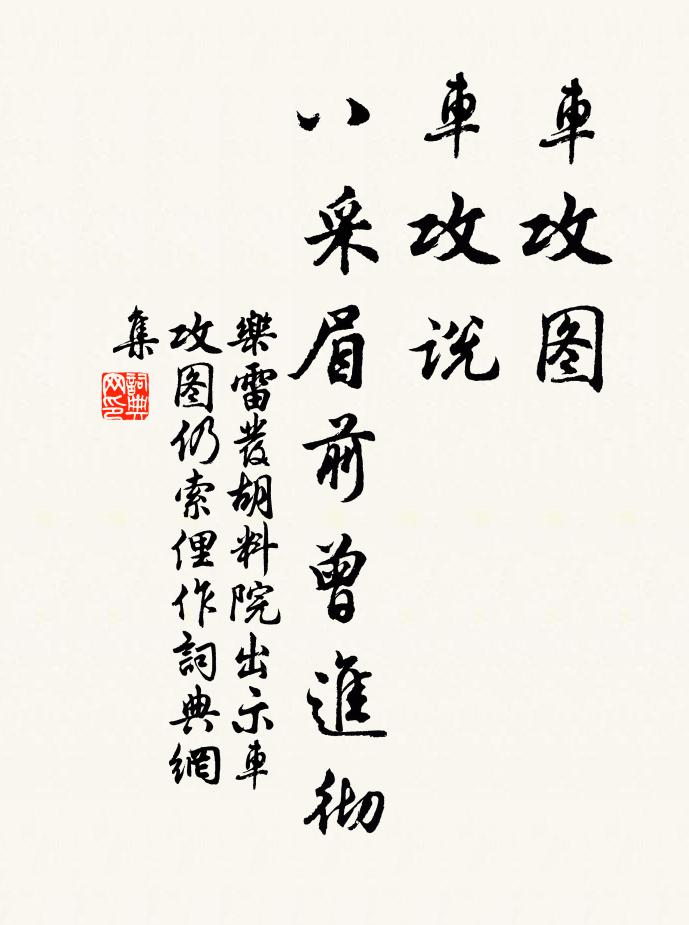 車攻图
車攻说
八采眉前曾進彻
樂雷發胡料院出示車
攻图仍索俚作詞典網
集
詞典
网印